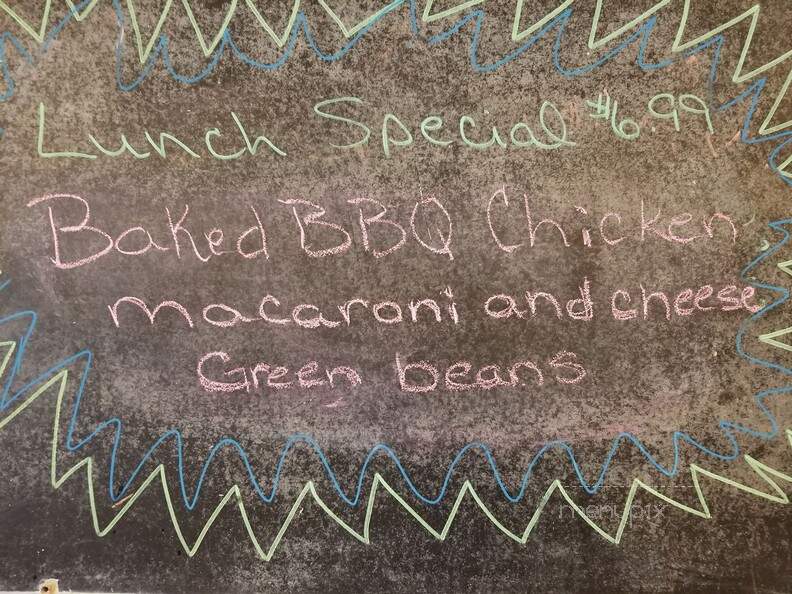 Lunch Special $6.99
Baked BBQ Chicken
macaroni and cheese
Green beans
menupix